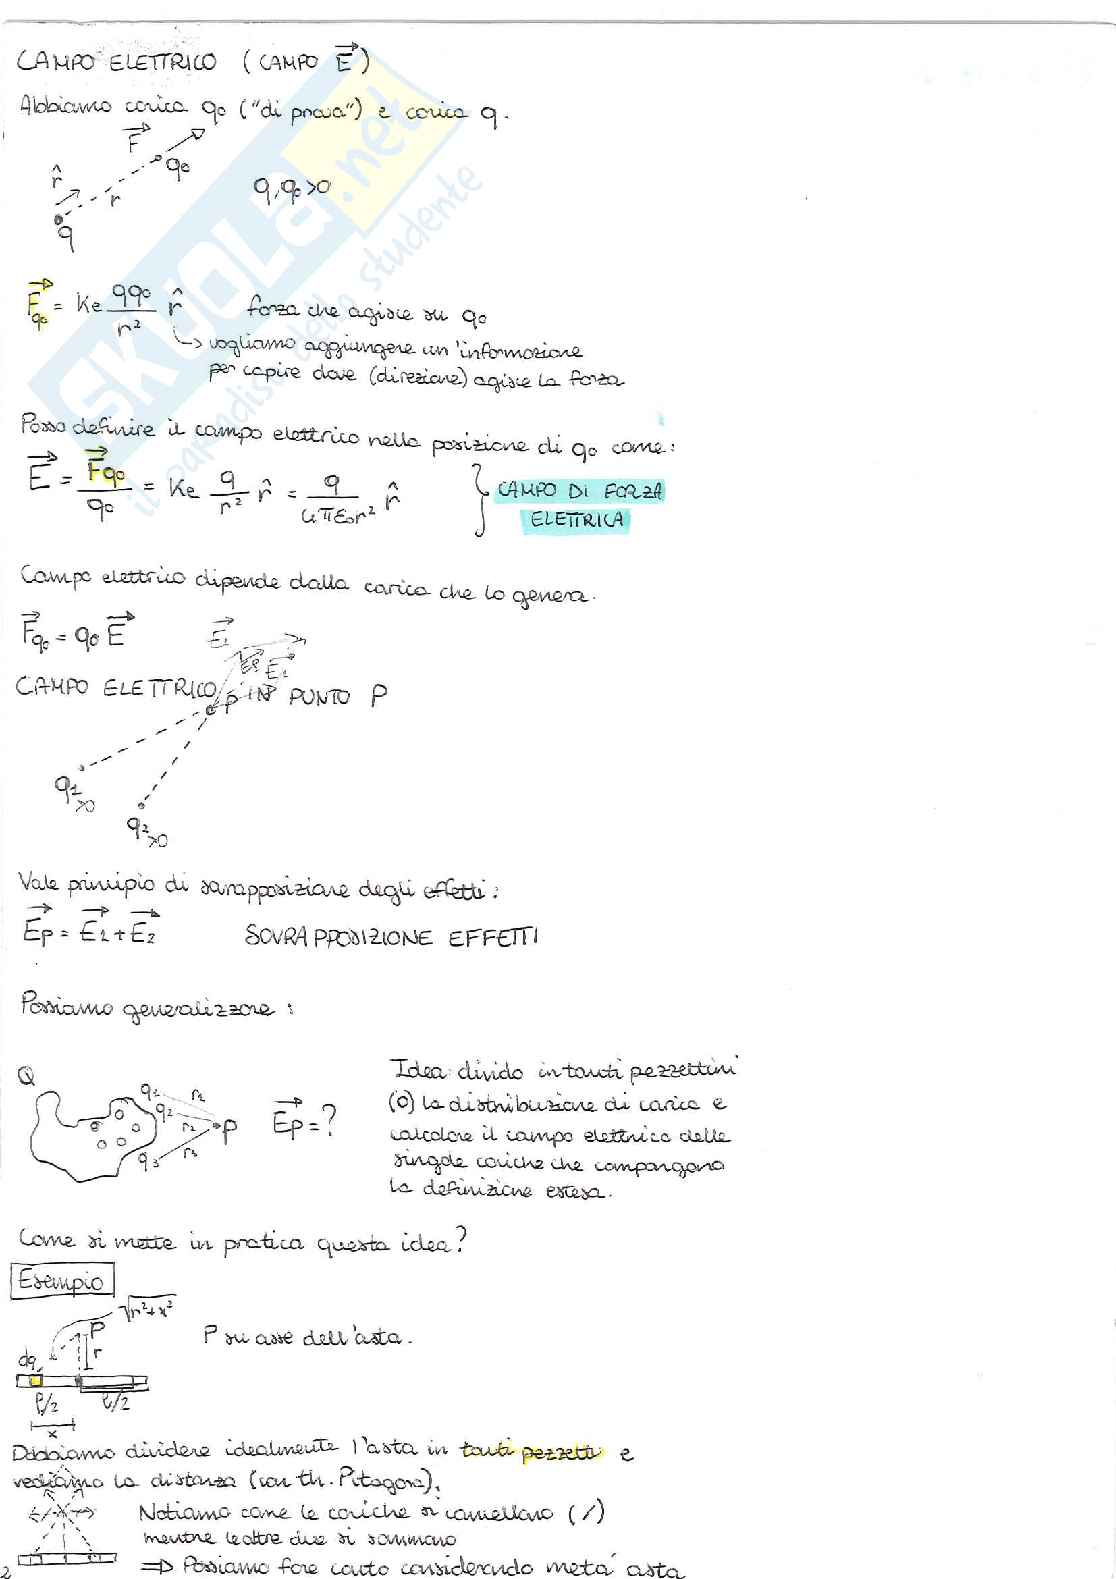 CAMPO ELETTRICO (CAMPO E)
Abbiamo carica q0 ("di prova") e carica q.
F
r̂
q0
r
q
q, q0 >0
Fq0 = Ke qq0/r² r̂ forza che agisce su q0
↳ vogliamo aggiungere un'informazione
per capire dove (direzione) agisce la forza
Posso definire il campo elettrico nella posizione di q0 come:
E = Fq0/q0 = Ke q/r² r̂ = q/4πε0r² r̂
CAMPO DI FORZA
ELETTRICA
Campo elettrico dipende dalla carica che lo genera.
Fq0 = q0 E
CAMPO ELETTRICO IN PUNTO P
P
q1 >0
q2 >0
Vale principio di sovrapposizione degli effetti:
Ep = E1 + E2 SOVRAPPOSIZIONE EFFETTI
Possiamo generalizzare:
Q
q1 r1
q2 r2
q3 r3
P
Ep = ?
Idea: divido in tanti pezzettini
(O) la distribuzione di carica e
calcolare il campo elettrico delle
singole cariche che compongono
la definizione estesa.
Come si mette in pratica questa idea?
Esempio
√r²+x²
P
r
dq
ℓ/2 ℓ/2
x
P su asse dell'asta.
Dobbiamo dividere idealmente l'asta in tanti pezzetti e
vediamo la distanza (con th. Pitagora).
Notiamo come le cariche si cancellano (/)
mentre le altre due si sommano
⇒ Possiamo fare conto considerando metà asta
2
SKUOLA.net
il paradiso dello studente